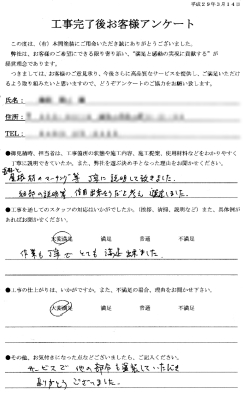 平成29年3月14日
工事完了後お客様アンケート
この度は、(有)本間装飾にご用命いただき誠にありがとうございました。
弊社は、お客様のご希望にできる限り寄り添い、"満足と感動の実現に貢献する"が
経営理念であります。
つきましては、お客様のご意見承り、今後さらに高品質なサービスを提供し、ご満足いただけ
るよう取り組みたいと思いますので、どうぞアンケートのご協力をお願い致します。
氏名:
住所:
TEL:
●御見積時、担当者は、工事箇所の状態や施工内容、施工範囲、使用材料などをわかりやすく
丁寧に説明できていいたか、また、弊社を選ぶ決め手となった理由をお聞かせください。
等 丁寧に説明して頂きました。
●工事を通してのスタッフの対応はいかがでしたか。(挨拶、清掃、説明など) また、具体例が
あればお聞かせください。
大変満足 満足 普通 不満足
作業も丁寧で とても 満足出来ました。
●工事の仕上がりは、いかがですか。また、不満足の場合、理由をお聞かせ下さい。
大変満足 満足 普通 不満足
●その他、お気付きになった点などございましたら、ご記入ください。
サービスで 他の部分も塗装していただき
ありがとう ございました。